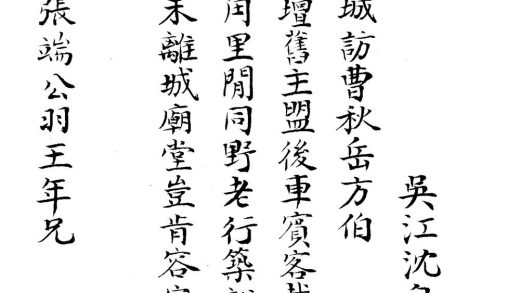 吳江沈
城訪曹秋岳方伯
壇舊主盟後車賓客
里閒同野老行築
未離城廟堂豈肯容
張端公羽王年兄